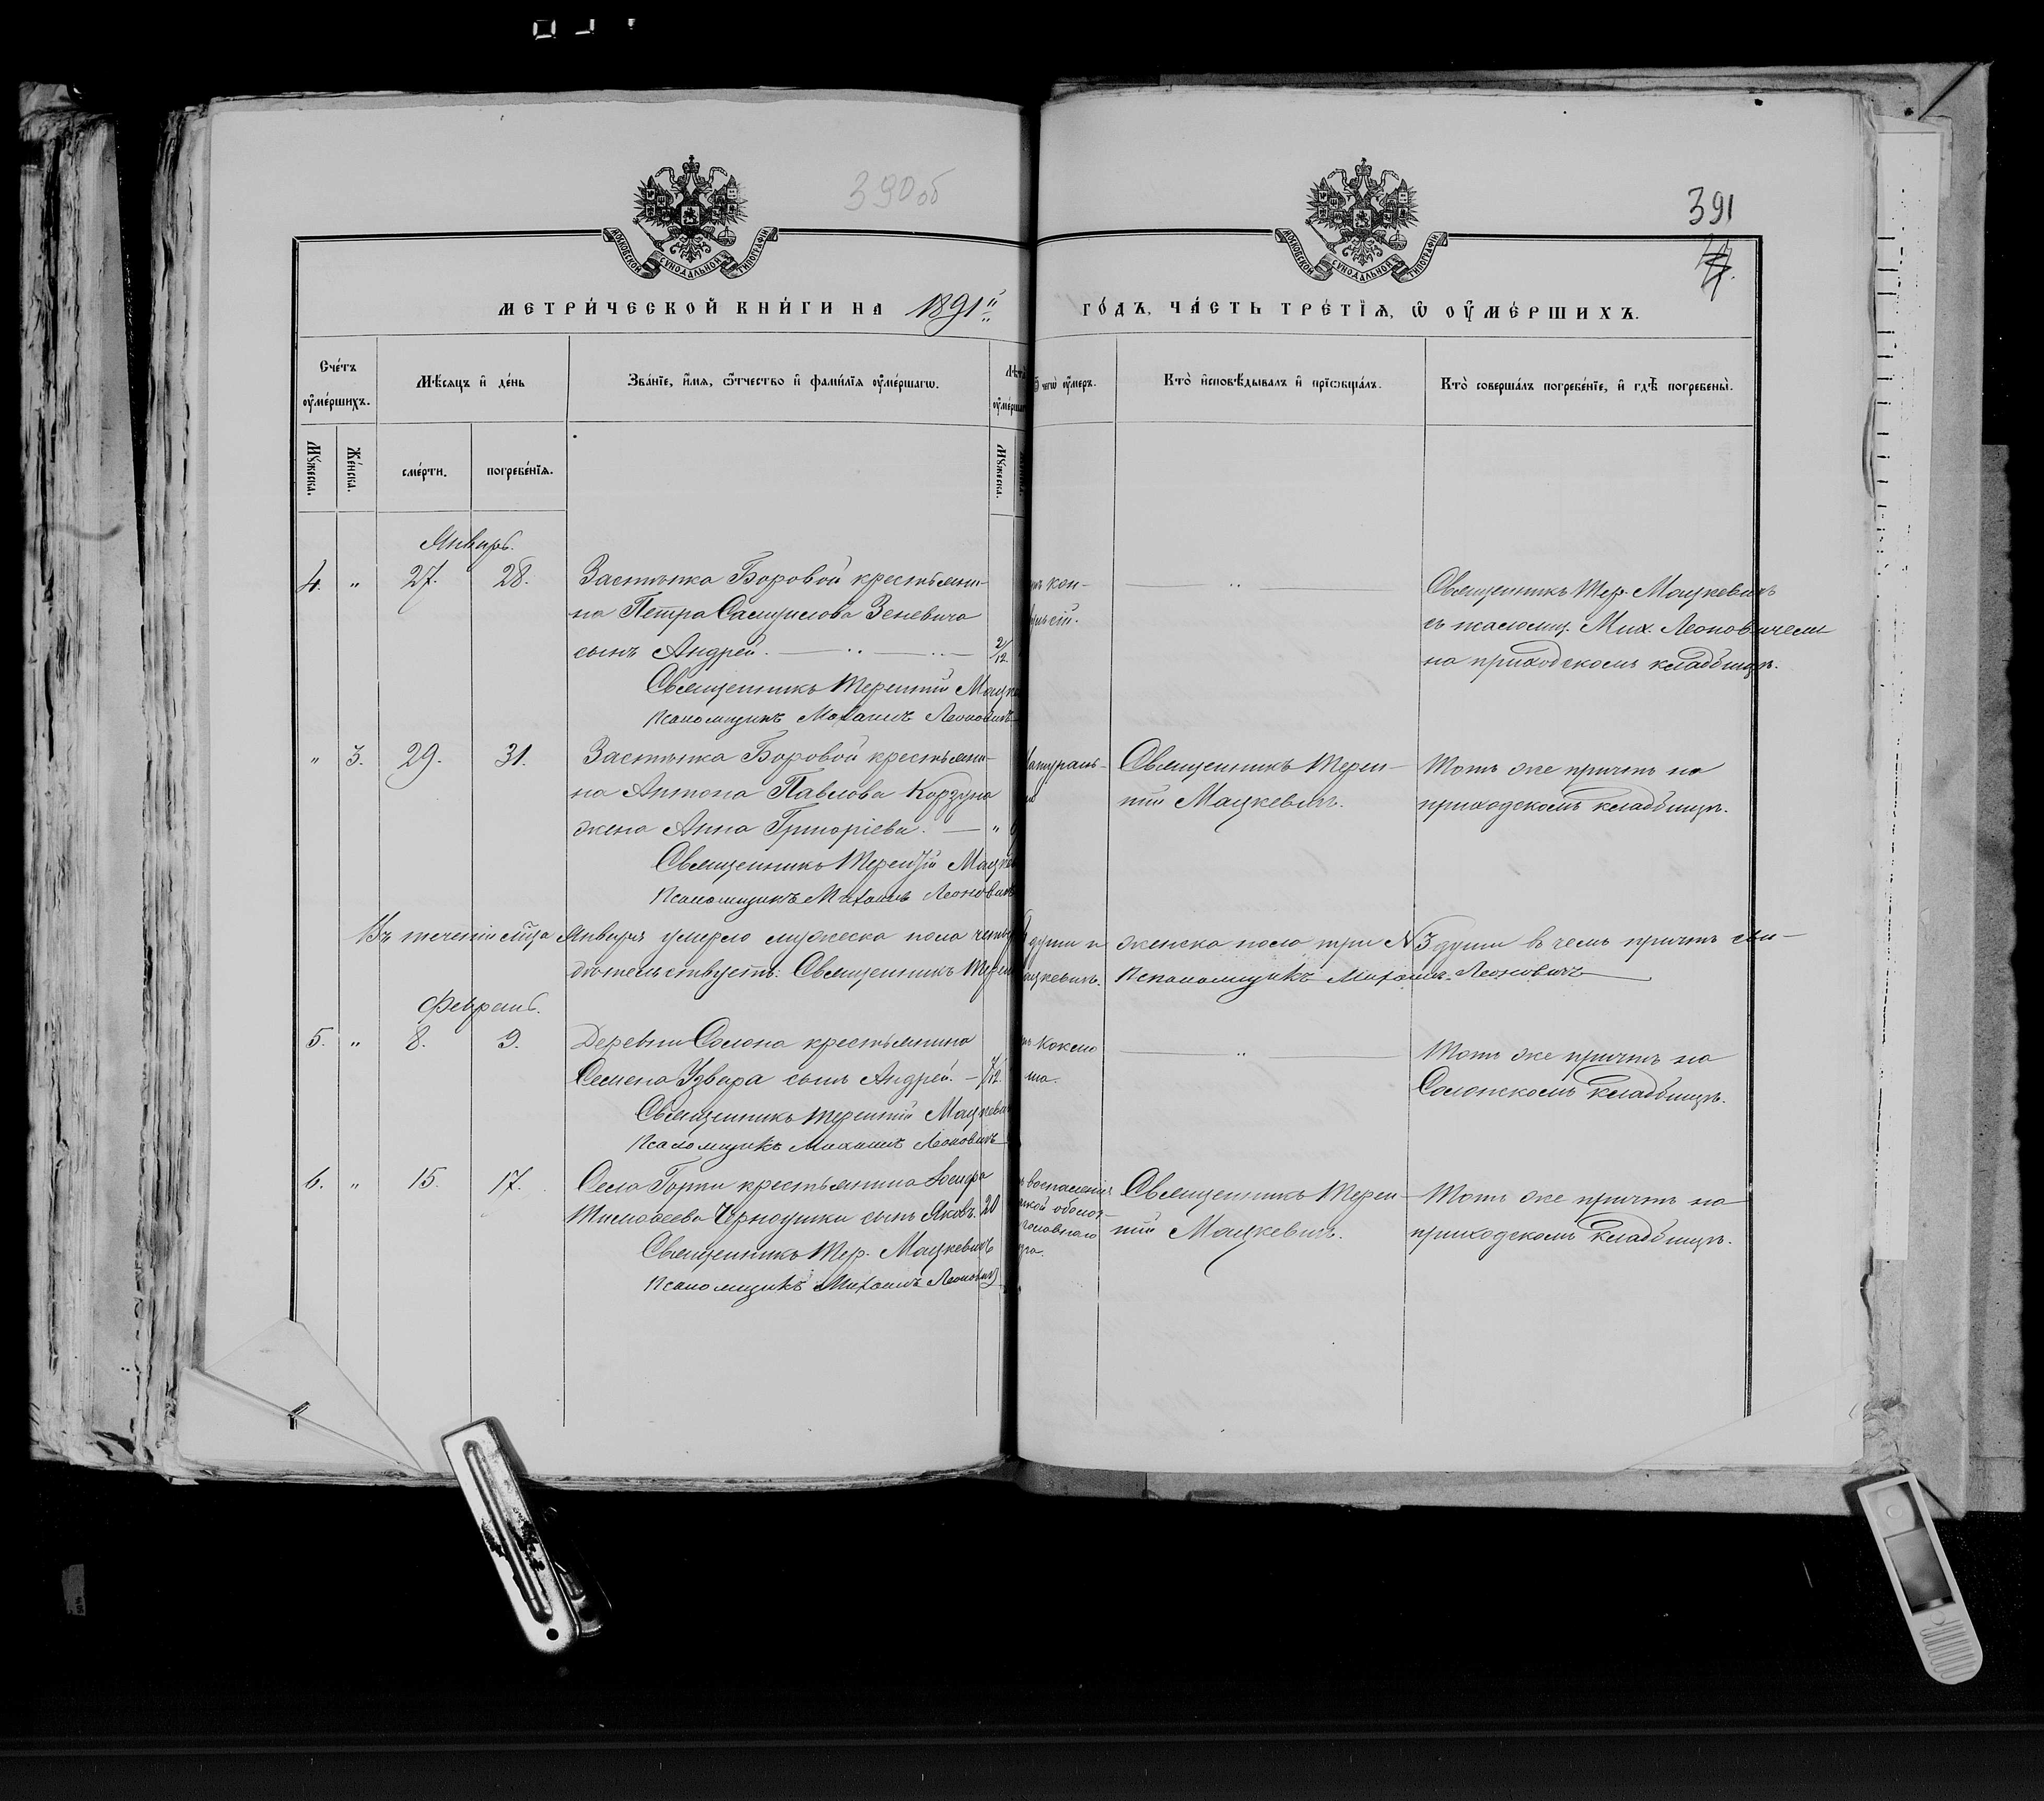 390 об
391
МОСКОВСКОЙ СѴНОДАЛЬНОЙ ТИПОГРАФІИ
МОСКОВСКОЙ СѴНОДАЛЬНОЙ ТИПОГРАФІИ
МЕТРИ́ЧЕСКОЙ КНИ́ГИ НА 1891й
ГО́ДЪ, ЧА́СТЬ ТРЕ́ТІѦ, Ѡ ОУМЕ́РШИХЪ.
Сче́тъ оуме́ршихъ.
Мѣ́сяцъ и де́нь
Зва́ніе, и́мя, ѻ́тчество и фами́лія оуме́ршагѡ.
Лѣта
оуме́ршаг
ѿ чегѡ̀ оу́меръ.
Кто̀ исповѣ́дывалъ и пріѡбща́лъ.
Кто̀ соверша́лъ погребе́ніе, и гдѣ̀ погребены̀.
Мꙋжеска.
Же́нска.
сме́рти.
погребе́нія.
Мꙋжеска.
Январь.
4. " 27. 28. Застѣнка Боровой крестьяни-
на Петра Самуилова Зеневича
сынъ Андрей. 2/12
Священникъ Терентій Мацке
Псаломщикъ Михаилъ Леонович
Священникъ Тер. Мацкевичъ
съ псаломщ. Мих. Леоновичемъ
на приходскомъ кладбищѣ.
" 3. 29. 31. Застѣнка Боровой крестьяни-
на Антона Павлова Корзуна
жена Анна Григоріева. "
Священникъ Терентій Мацке
Псаломщикъ Михаилъ Леонович
натураль-
Священникъ Терен-
тій Мацкевичъ.
Тотъ же причтъ на
приходскомъ кладбищѣ.
Въ теченіи м-ца Января умерло мужеска пола четы души и женска пола три № 3 души въ чемъ причтъ сви-
дѣтельствуетъ: Священникъ Терен Мацкевичъ. Псаломщикъ Михаилъ Леоновичъ
Февраль.
5. " 8. 9. Деревни Солона крестьянина
Семена Удвара сынъ Андрей. 7/12
Священникъ Терентій Мацкевич
Псаломщикъ Михаилъ Леоновичъ
Коклю
ша.
Тотъ же причтъ на
Солонскомъ кладбищѣ.
6. " 15. 17. Села Горки крестьянина Іосифа
Тимоѳеева Черноушки сынъ Яковъ. 20
Священникъ Тер. Мацкевичъ
Псаломщикъ Михаилъ Леонович
воспаленія
кой оболоч-
головнаго
Священникъ Терен-
тій Мацкевичъ.
Тотъ же причтъ на
приходскомъ кладбищѣ.